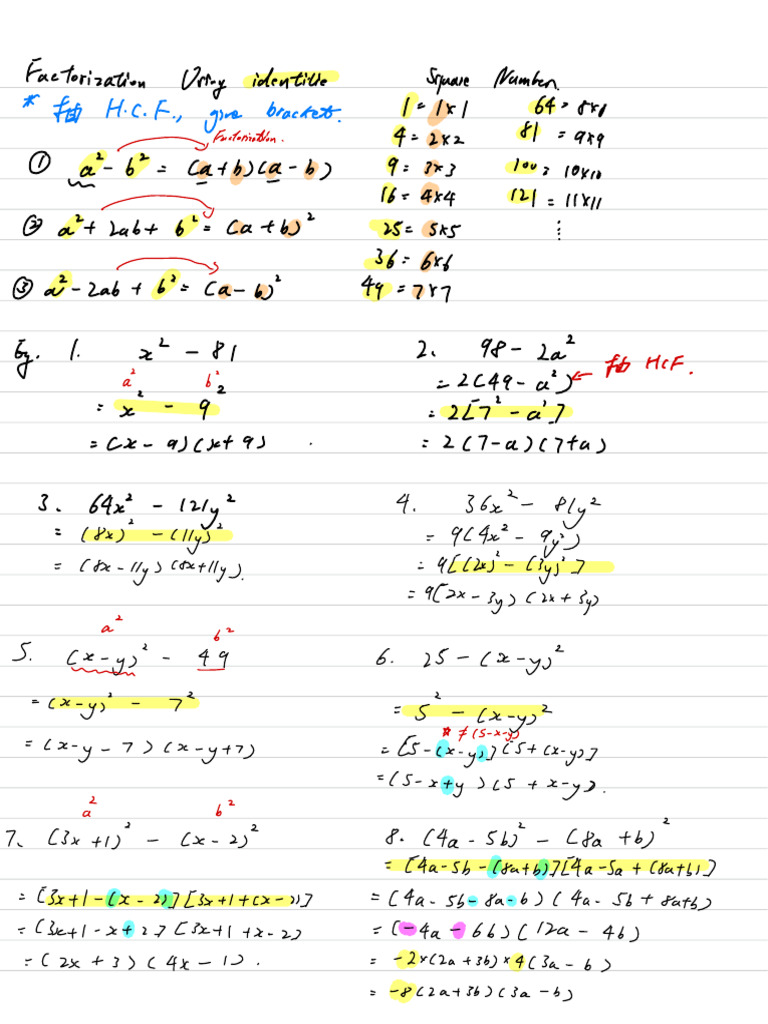 Factorization Using identitie
* 抽 H.C.F., give brackets.
Factorization.
① a² - b² = (a+b)(a-b)
② a² + 2ab + b² = (a+b)²
③ a² - 2ab + b² = (a-b)²
Square Number.
1 = 1×1
4 = 2×2
9 = 3×3
16 = 4×4
25 = 5×5
36 = 6×6
49 = 7×7
64 = 8×8
81 = 9×9
100 = 10×10
121 = 11×11
⋮
Eg. 1. x² - 81
a² b²
= x² - 9²
= (x-9)(x+9)
2. 98 - 2a²
= 2(49 - a²) ← 抽 HCF.
= 2[7² - a²]
= 2(7-a)(7+a)
3. 64x² - 121y²
= (8x)² - (11y)²
= (8x-11y)(8x+11y).
4. 36x² - 81y²
= 9(4x² - 9y²)
= 9[(2x)² - (3y)²]
= 9[2x - 3y)(2x + 3y)
a² b²
5. (x-y)² - 49
= (x-y)² - 7²
= (x-y-7)(x-y+7)
6. 25 - (x-y)²
= 5² - (x-y)²
* ≠ (5-x-y)
= [5-(x-y)][5+(x-y)]
= (5-x+y)(5+x-y).
a² b²
7. (3x+1)² - (x-2)²
= [3x+1-(x-2)][3x+1+(x-2)]
= (3x+1-x+2)[3x+1+x-2)
= (2x+3)(4x-1).
8. (4a-5b)² - (8a+b)²
= [4a-5b-(8a+b)][4a-5a+(8a+b)]
= (4a-5b-8a-b)(4a-5b+8a+b)
= (-4a-6b)(12a-4b)
= -2×(2a+3b)×4(3a-b)
= -8(2a+3b)(3a-b)